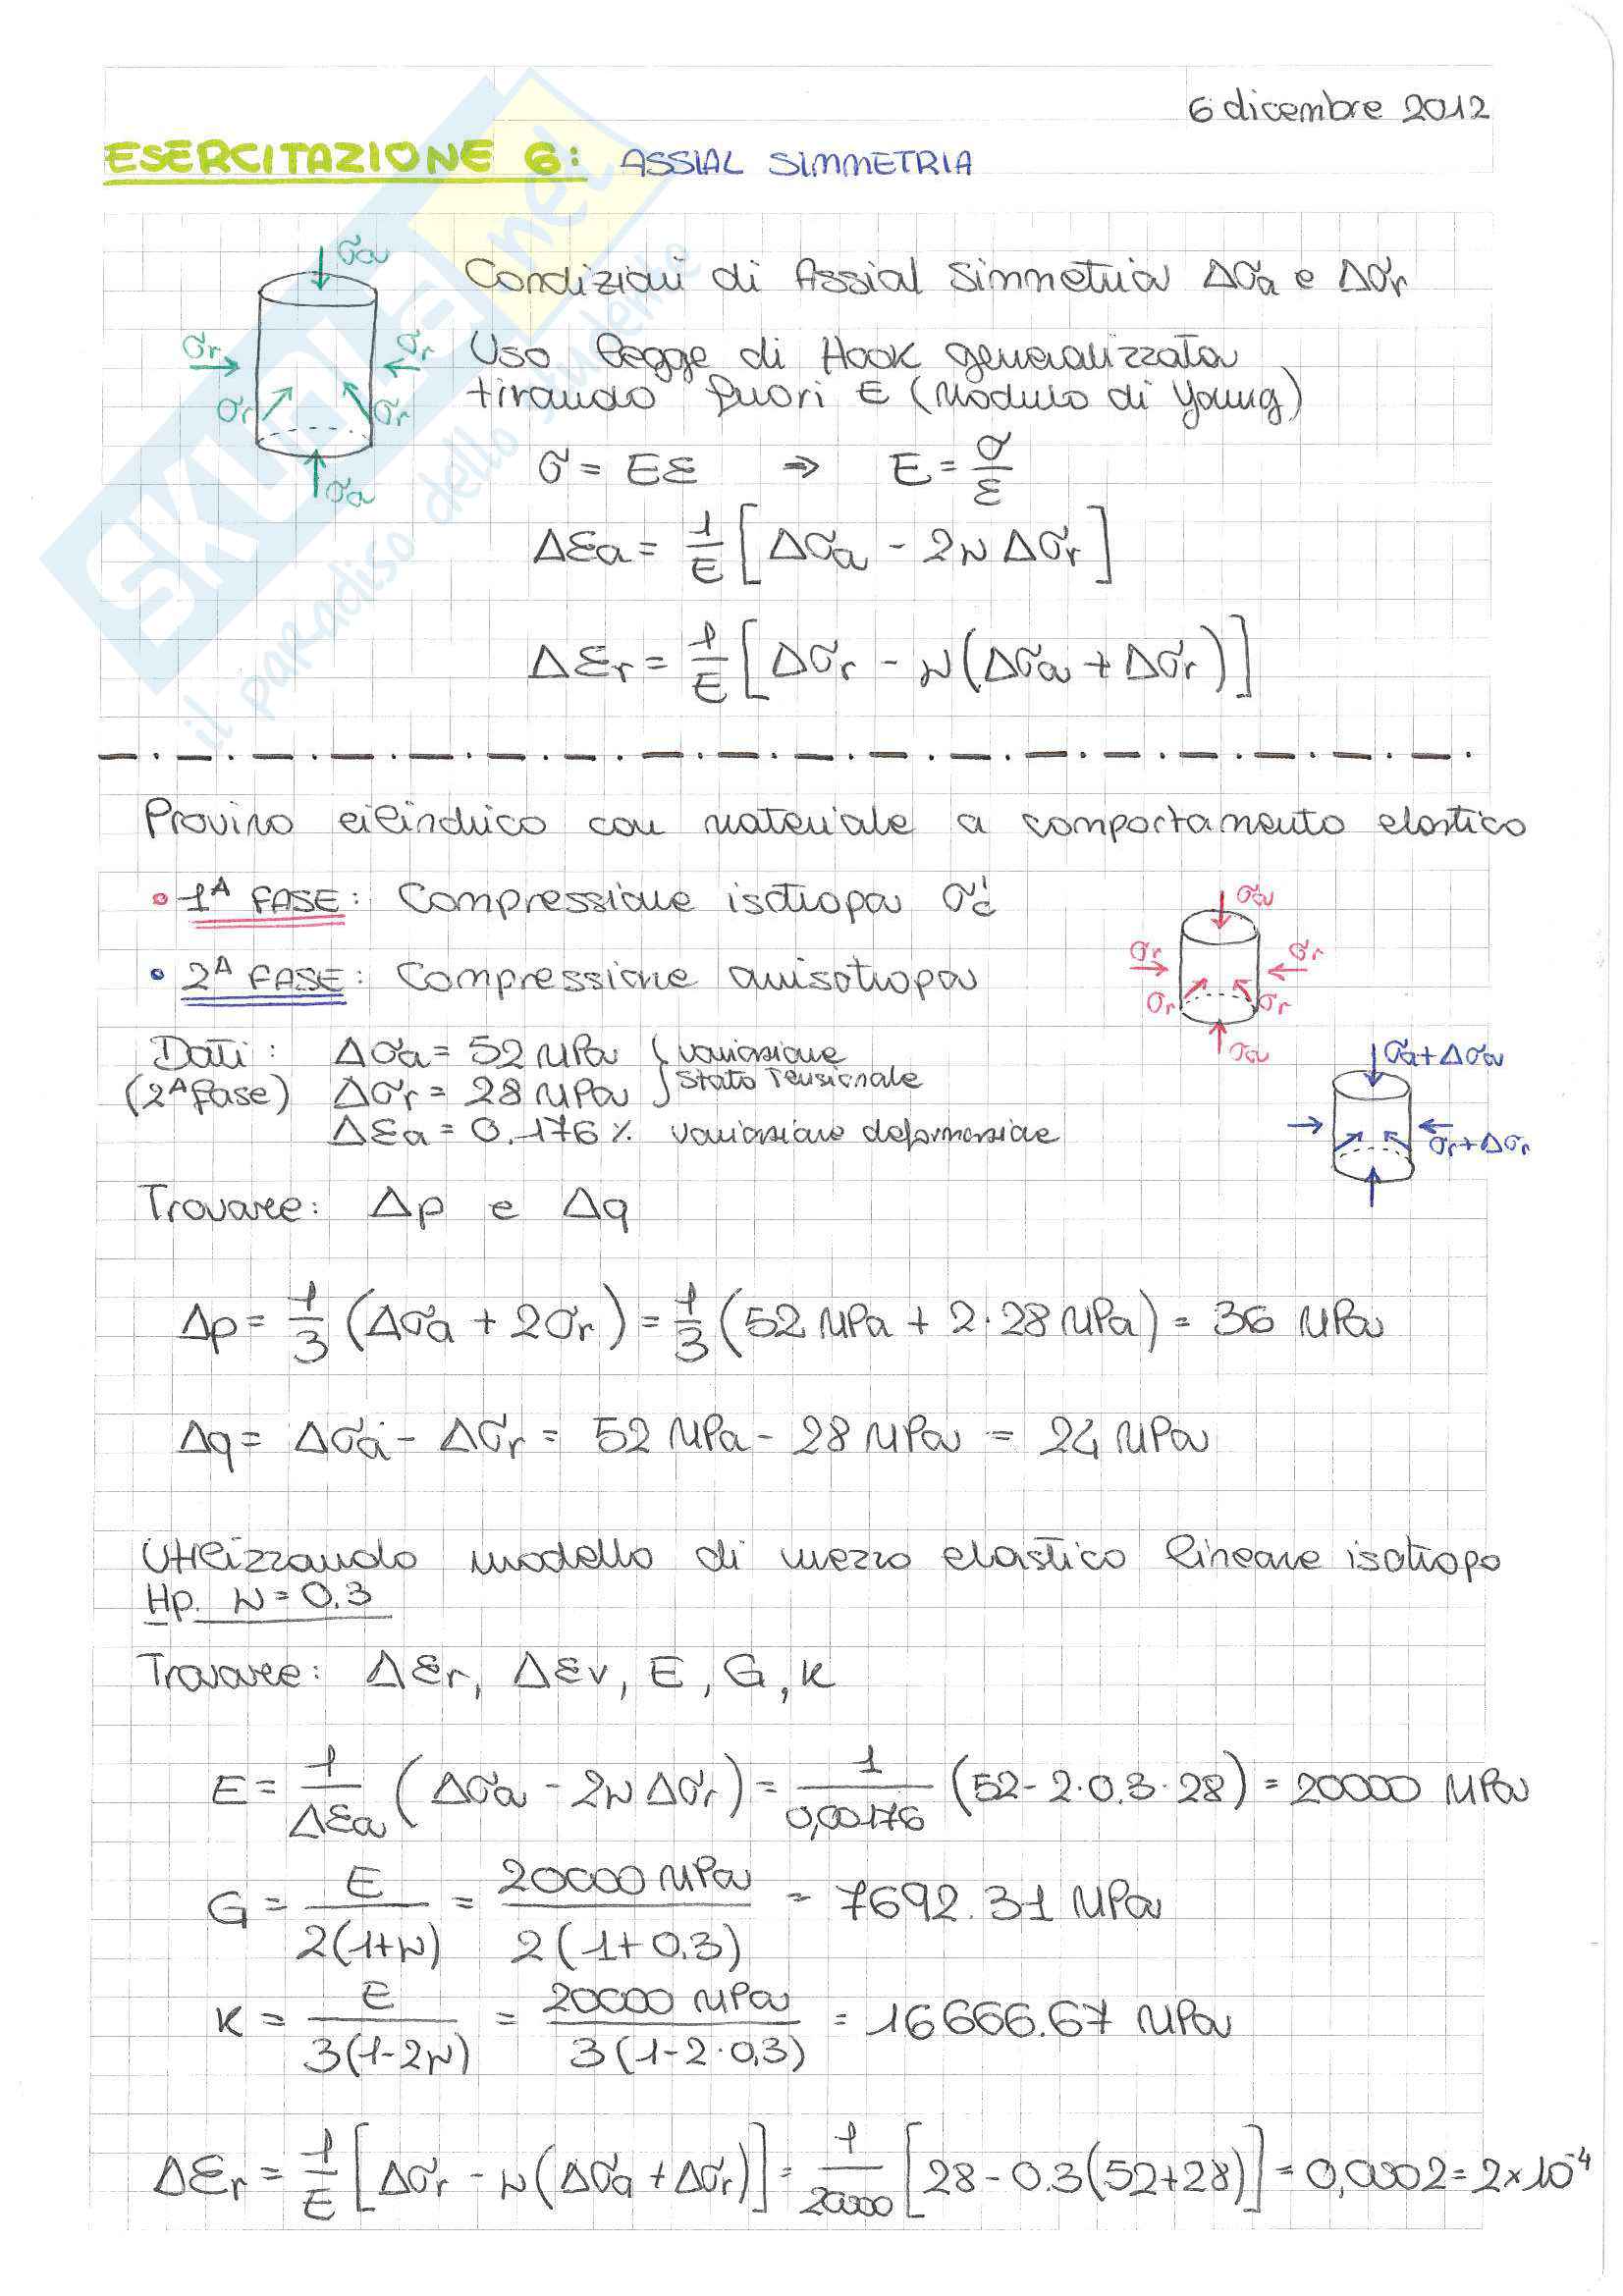 6 dicembre 2012
ESERCITAZIONE 6: ASSIAL SIMMETRIA
σa
σr
σr
σr
σr
σa
Condizioni di Assial Simmetria Δσa e Δσr
Uso legge di Hook generalizzata
tirando fuori E (Modulo di Young)
σ = Eε ⇒ E = σ/ε
Δεa = 1/E [Δσa - 2ν Δσr]
Δεr = 1/E [Δσr - ν(Δσa + Δσr)]
Provino cilindrico con materiale a comportamento elastico
• 1ᴬ FASE: Compressione isotropa σ'c
• 2ᴬ FASE: Compressione anisotropa
σa
σr
σr
σr
σr
σa
Dati: Δσa = 52 MPa } variazione
(2ᴬ fase) Δσr = 28 MPa } stato tensionale
Δεa = 0.176% variazione deformazione
σa+Δσa
σr+Δσr
Trovare: Δp e Δq
Δp = 1/3 (Δσa + 2σr) = 1/3 (52 MPa + 2·28 MPa) = 36 MPa
Δq = Δσa - Δσr = 52 MPa - 28 MPa = 24 MPa
Utilizzando modello di mezzo elastico lineare isotropo
Hp. ν = 0.3
Trovare: Δεr, Δεv, E, G, K
E = 1/Δεa (Δσa - 2ν Δσr) = 1/0,00176 (52 - 2·0.3·28) = 20000 MPa
G = E/2(1+ν) = 20000 MPa/2(1+0.3) = 7692.31 MPa
K = E/3(1-2ν) = 20000 MPa/3(1-2·0,3) = 16666.67 MPa
Δεr = 1/E [Δσr - ν(Δσa + Δσr)] = 1/20000 [28 - 0.3(52+28)] = 0,0002 = 2×10⁻⁴
SKUOLA.net
il paradiso dello studente